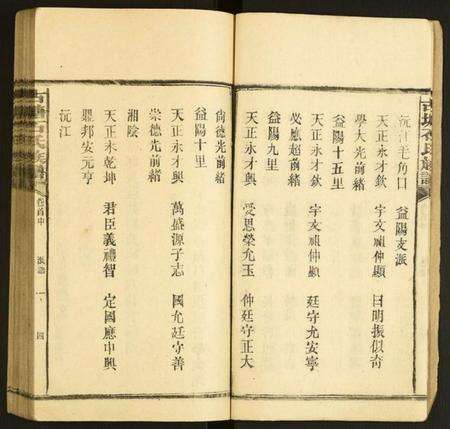 沅江毛角口 益陽支派
天正永才欽 宇文祖伸顯 日明振似奇
學大光前緒
益陽十五里
天正永才欽 宇文祖伸顯 廷守尤安寧
必應超前緒
益陽九里
天正永才興 受恩榮允玉 仲廷守正大
尙德光前緒
益陽十里
天正永才興 萬盛源子志 國允廷守善
崇德光前緒
湘陰
天正永乾坤 君臣義禮智 定國應中興
興邦安元亨
沅江
石氏族譜
卷首中
派語
四